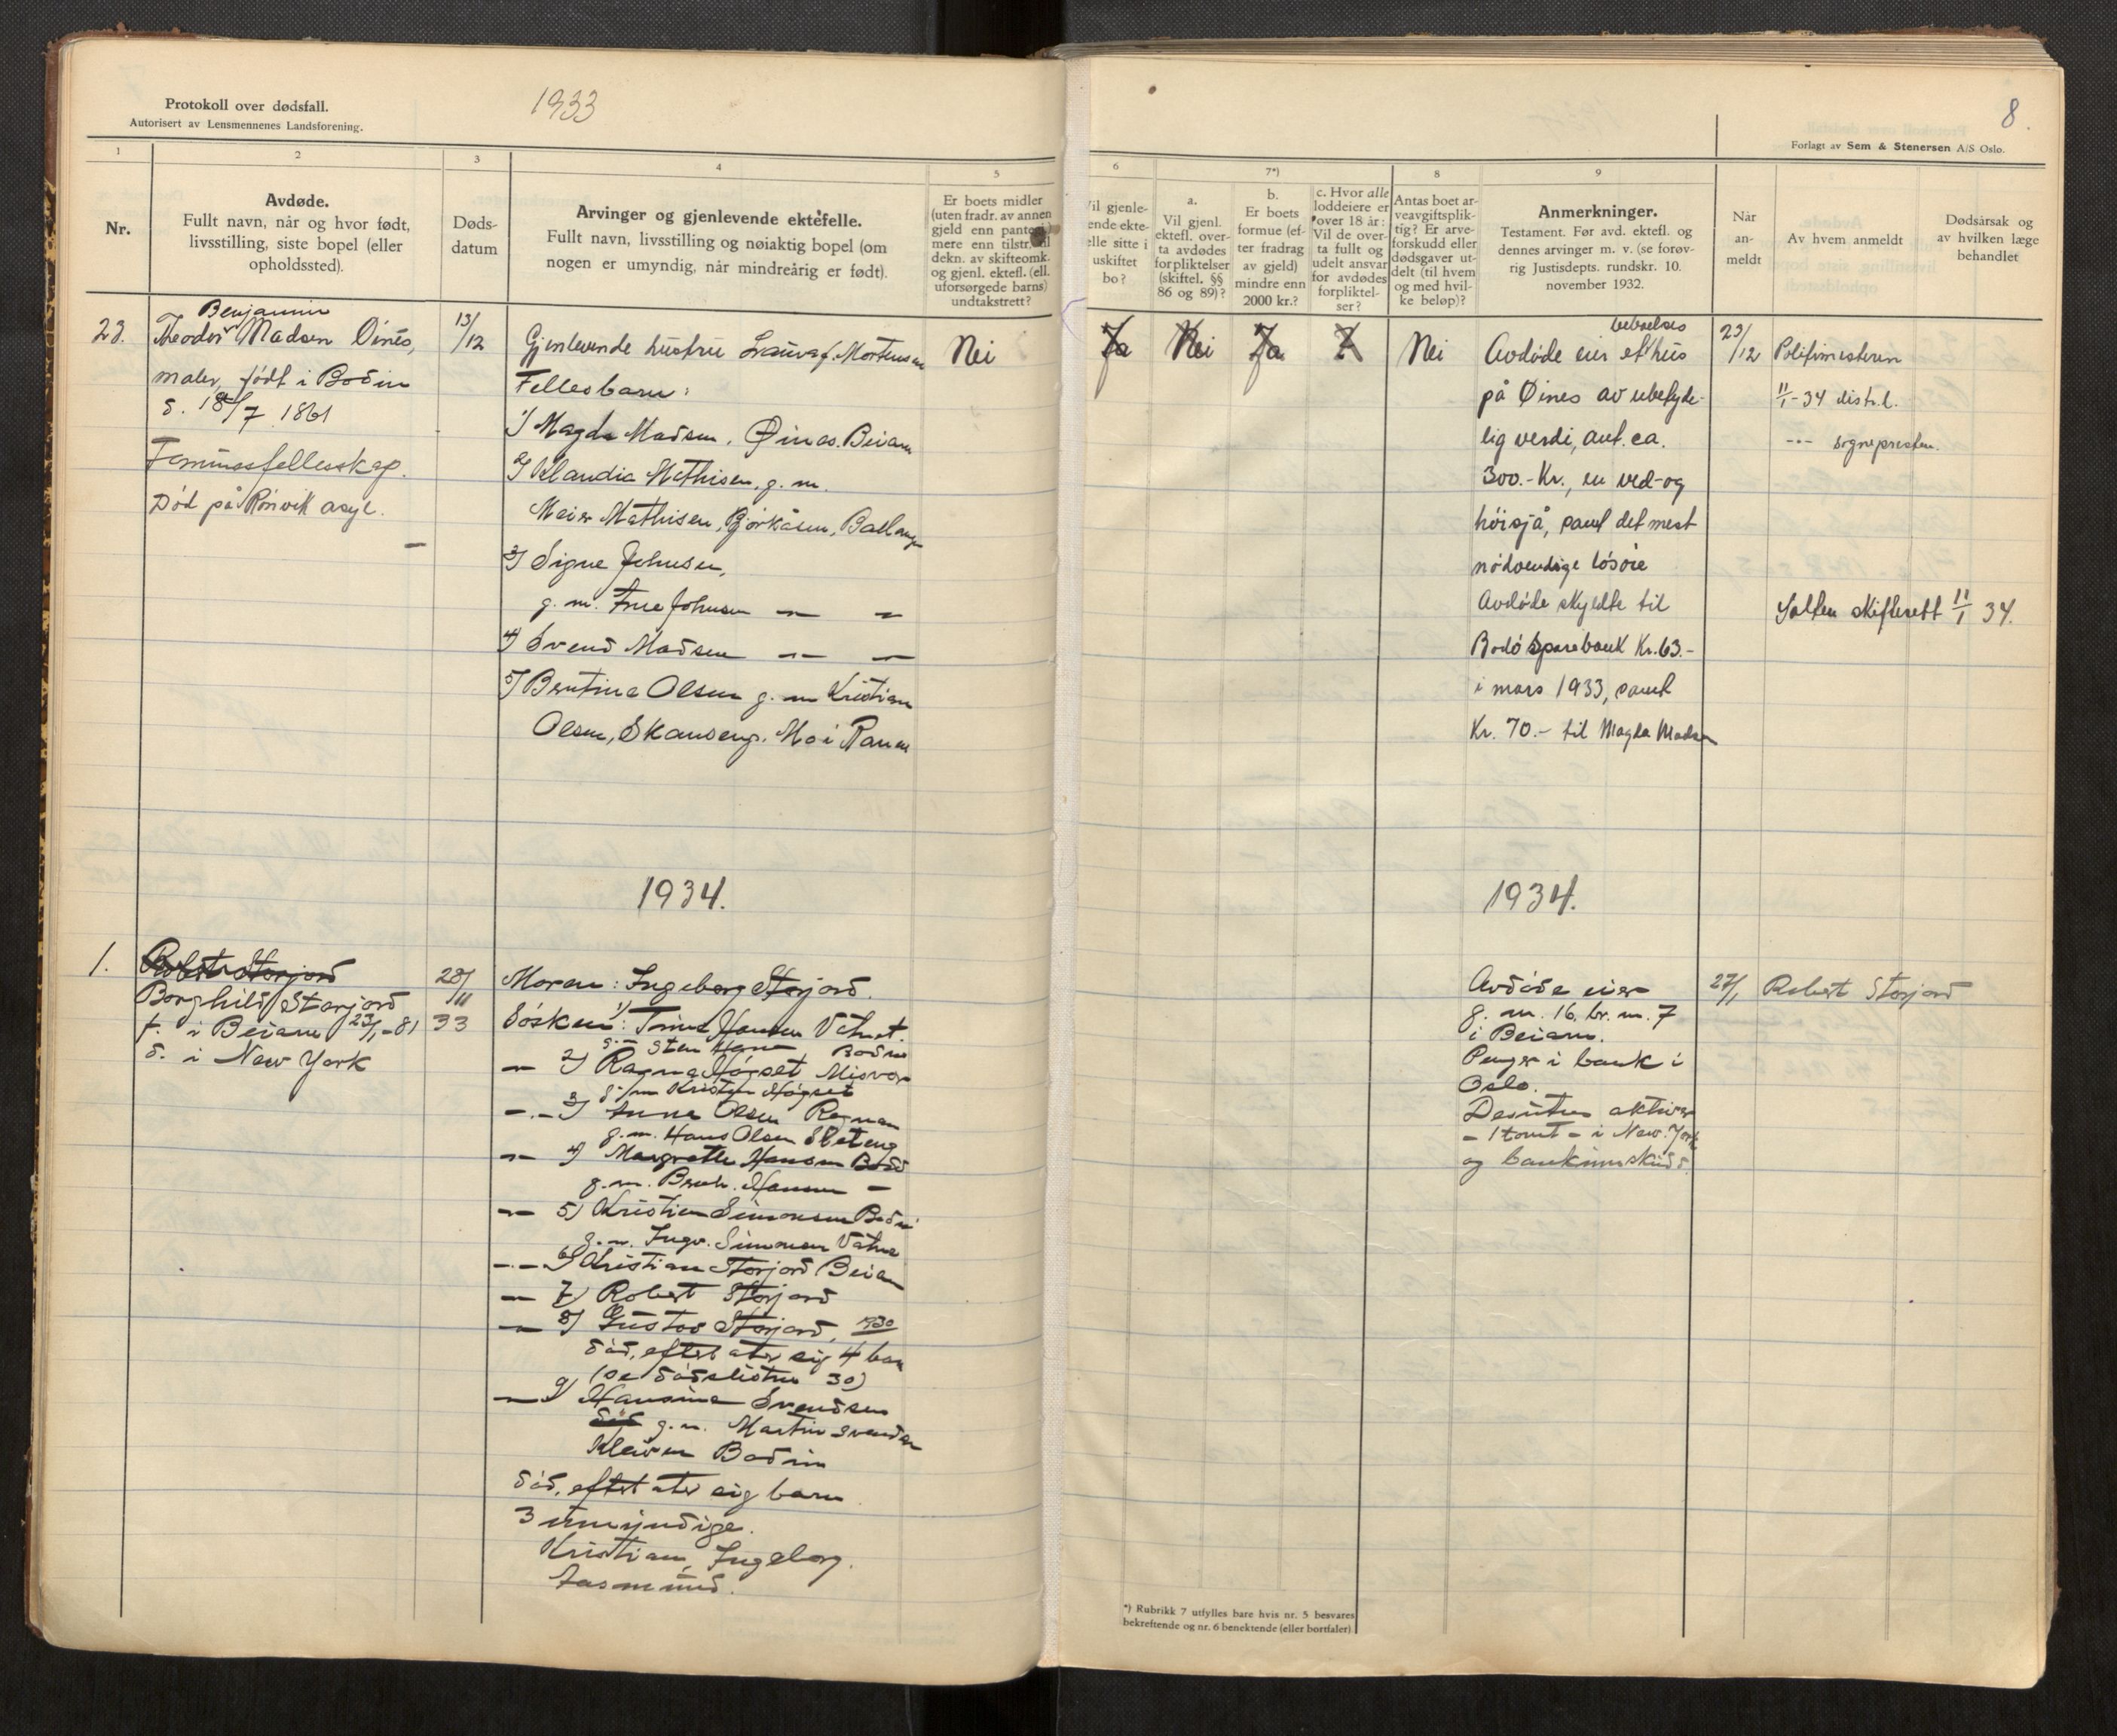 Protokoll over dødsfall.
Autorisert av Lensmennenes Landsforening.
1933
1
2
3
4
5
Nr.
Avdøde.
Fullt navn, når og hvor født,
livsstilling, siste bopel (eller
opholdssted).
Døds-
datum
Arvinger og gjenlevende ektefelle.
Fullt navn, livsstilling og nøiaktig bopel (om
nogen er umyndig, når mindreårig er født).
Er boets midler
(uten fradr. av annen
gjeld enn
mere enn
dekn. av skifteomk.
og gjenl. ektefl. (ell.
uforsørgede barns)
undtakstrett?
23.
Benjamin
Theodor Madsen Øines,
maler, født i Bodin
d. 18/7 1861
Formuesfellesskap.
Død på Rønvik asyl.
13/12
Gjenlevende hustru Laura f. Mortensen
Fellesbarn:
1) Magda Madsen, Øines. Beiarn
2) Klaudia Mathisen, g. m.
Meier Mathisen, Bjørkåsen, Ballangen
3) Signe Johnsen,
g. m. Johnsen — " — "
4) Svend Madsen — " — "
5) Bentine Olsen g. m Kristian
Olsen, Skanseng. Mo i Ranen
Nei
1934.
1.
Robert Storjord
Borghild Storjord
f. i Beiarn 23/1-81
d. i New York
28/11
33
Moren: Ingeborg Storjord.
Søsken: 1) Trine Hansen Vatnet.
g. m Sten Bodin
— " — 2) Ragna Høgset Misvær
g. m Kristen Høgset
— " — 3) Anna Olsen Rognan
g. m. Hans Olsen Sleteng
— " — 4) Margrethe Hansen Bodø
g. m. Hansen —
— " — 5) Kristien Simonsen Bodin
g. m. Ingv. Simonsen Vatne
— " — 6) Kristian Storjord Beiarn
— " — 7) Robert Storjord
— " — 8) Gustav Storjord, 1930
død, efterlater sig 4 barn
(se dødslisten 30)
— " — 9) Hansine Svendsen
død g. m. Martin Svendsen
Kleiven Bodin
død, efterlater sig barn
3 umyndige.
Kristian, Ingeborg.
Aasmund.
8.
Forlagt av Sem & Stenersen A/S Oslo.
6
7*)
8
9
Vil gjenle-
ende ekte-
elle sitte i
uskiftet
bo?
a.
Vil gjenl.
ektefl. over-
ta avdødes
forpliktelser
(skiftel. §§
86 og 89)?
b.
Er boets
formue (ef-
ter fradrag
av gjeld)
mindre enn
2000 kr.?
c. Hvor alle
loddeiere er
over 18 år:
Vil de over-
ta fullt og
udelt ansvar
for avdødes
forpliktel-
ser?
Antas boet ar-
veavgiftsplik-
tig? Er arve-
forskudd eller
dødsgaver ut-
delt (til hvem
og med hvil-
ke beløp)?
Anmerkninger.
Testament. Før avd. ektefl. og
dennes arvinger m. v. (se forøv-
rig Justisdepts. rundskr. 10.
november 1932.
Når
an-
meldt
Av hvem anmeldt
Dødsårsak og
av hvilken læge
behandlet
Ja
Nei
Ja
Nei
beboelses
Avdøde eier et hus
på Øines av ubetyde-
lig verdi, ant. ca.
300.- Kr., en ved- og
høisjå, samt det mest
nødvendige løsøre
Avdøde skyldte til
Bodø Sparebank Kr. 63.-
i mars 1933, samt
Kr. 70.- til Magda Madsen
23/12
Politimesteren
11/1-34 distr.l.
-"- sognepresten.
Salten skifterett 11/1 34.
1934.
Avdøde eier
g. nr. 16. br. nr. 7
i Beiarn.
Penger i bank i
Oslo.
Desuten aktiver
- 1 tomt - i New York
og bankinnskudd.
27/1
Robert Storjord
*) Rubrikk 7 utfylles bare hvis nr. 5 besvares
bekreftende og nr. 6 benektende (eller bortfaler)